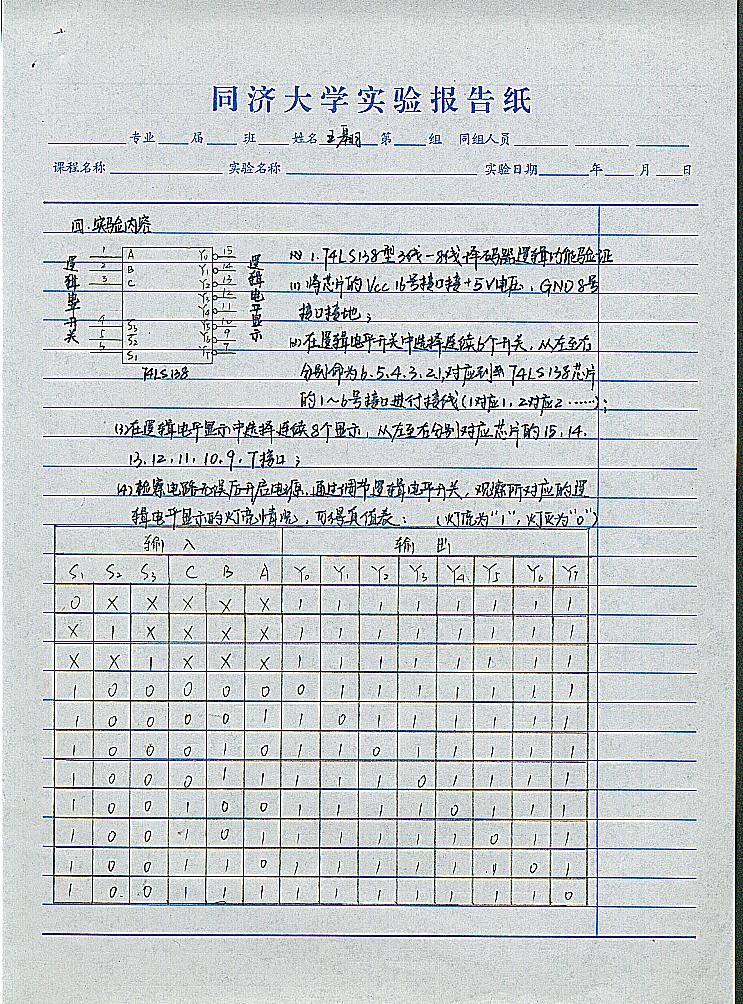 同济大学实验报告纸
专业 届 班 姓名 第 组 同组人员
课程名称 实验名称 实验日期 年 月 日
四.实验内容
逻辑电平开关
1 A
2 B
3 C
4 S̅3
5 S̅2
6 S1
Y0 15
Y1 14
Y2 13
Y3 12
Y4 11
Y5 10
Y6 9
Y7 7
逻辑电平显示
74LS138
1.74LS138型3线-8线译码器逻辑功能验证
(1) 将芯片的Vcc 16号接口接+5V电压,GND 8号
接口接地;
(2)在逻辑电平开关中选择连续6个开关,从左至右
分别命为6.5.4.3.2.1,对应到 74LS138芯片
的1~6号接口进行接线(1对应1,2对应2……);
(3)在逻辑电平显示中选择连续8个显示,从左至右分别对应芯片的15.14.
13.12.11.10.9.7接口;
(4)检察电路无误后开启电源.通过调节逻辑电平开关,观察所对应的逻
辑电平显示的灯亮情况,可得真值表: (灯亮为"1",灯灭为"0")
输入 输出
S1 S2 S3 C B A Y0 Y1 Y2 Y3 Y4 Y5 Y6 Y7
0 X X X X X 1 1 1 1 1 1 1 1
X 1 X X X X 1 1 1 1 1 1 1 1
X X 1 X X X 1 1 1 1 1 1 1 1
1 0 0 0 0 0 0 1 1 1 1 1 1 1
1 0 0 0 0 1 1 0 1 1 1 1 1 1
1 0 0 0 1 0 1 1 0 1 1 1 1 1
1 0 0 0 1 1 1 1 1 0 1 1 1 1
1 0 0 1 0 0 1 1 1 1 0 1 1 1
1 0 0 1 0 1 1 1 1 1 1 0 1 1
1 0 0 1 1 0 1 1 1 1 1 1 0 1
1 0 0 1 1 1 1 1 1 1 1 1 1 0